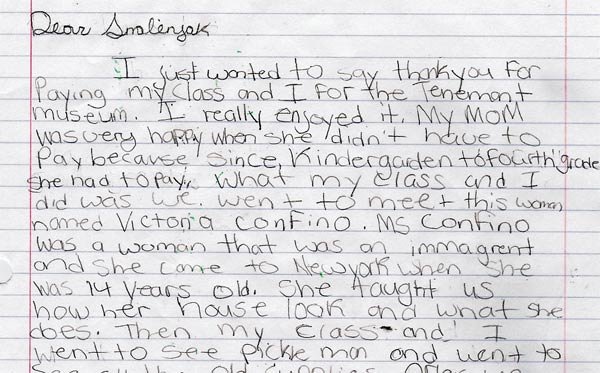 Dear Smolenyak
I just wanted to say thankyou for
Paying my class and I for the Tenemont
museum. I really enjoyed it. My MOM
was very happy when she didn't have to
Pay because since, Kindergarden to fourth grade
she had to pay. What my class and I
did was we. went to meet this woman
named Victoria Confino. Ms Confino
was a woman that was an immagrent
and she came to Newyork when she
was 14 years old. She taught us
how her house look and what she
does. Then my class and I
went to see pickle man and went to
see all the old supplies